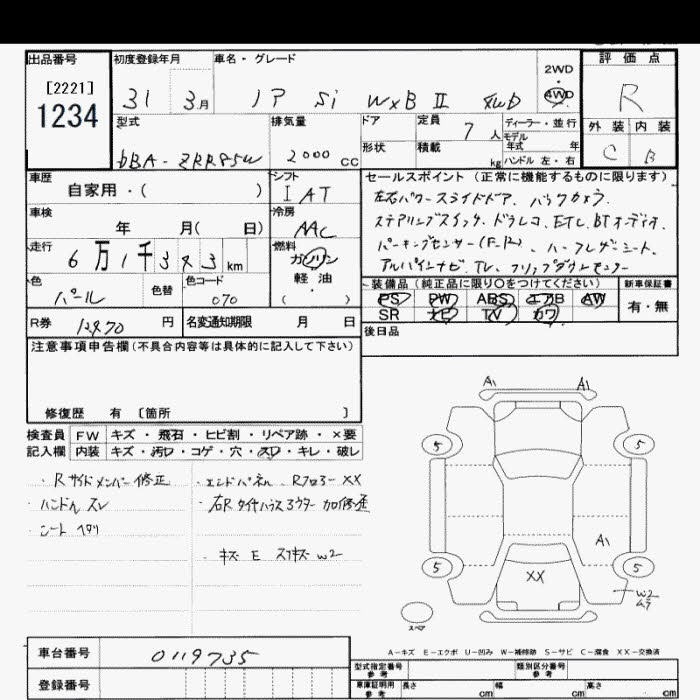 出品番号 初度登録年月 車名・グレード 2WD ・ 4WD 評価点
[2221]
1234
31 3月 Si WxB II 4WD R
型式 排気量 ドア 定員 7人 ディーラー・並行
モデル 年式 年
形状 積載 kg ハンドル 左・右
外装 内装
DBA-ZRR85W 2000 CC C B
車歴 自家用・( ) シフト I AT
セールスポイント(正常に機能するものに限ります)
左右パワースライドドア、バックカメラ
車検 年 月( 日) 冷房 AAC
ステアリングスイッチ、ドラレコ、ETC、BTオーディオ
走行 6万1千3 8 3 km 燃料 ガソリン 軽油 ( )
パーキングセンサー(F.R)、ハーフレザーシート
アルパインナビ、TV、フリップダウンモニター
色 パール 色替 色コード 070
装備品(純正品に限り〇をつけてください) 新車保証書
PS PW ABS エアB AW 有・無
SR ナビ TV カワ
R券 12970 円 名変通知期限 月 日
後日品
注意事項申告欄(不具合内容等は具体的に記入して下さい)
修復歴 有 〔箇所 〕
検査員 FW キズ・飛石・ヒビ割・リペア跡・×要
記入欄 内装 キズ・汚れ・コゲ・穴・スレ・キレ・破レ
・Rサイドメンバー修正
・ハンドルスレ
・シートヘタリ
・エンドパネル Rフロアー XX
・右Rタイヤハウスアウター加修歪
・キズ E スリキズ W2
A1 A1
5 5
A1
5 5
XX
W2
ムラ
スペア
A-キズ E-エクボ U-凹み W-補修跡 S-サビ C-腐食 XX-交換済
車台番号 0119735
登録番号
型式指定番号 参考 類別区分番号 参考
車庫証明用 参考 長さ cm 幅 cm 高さ cm